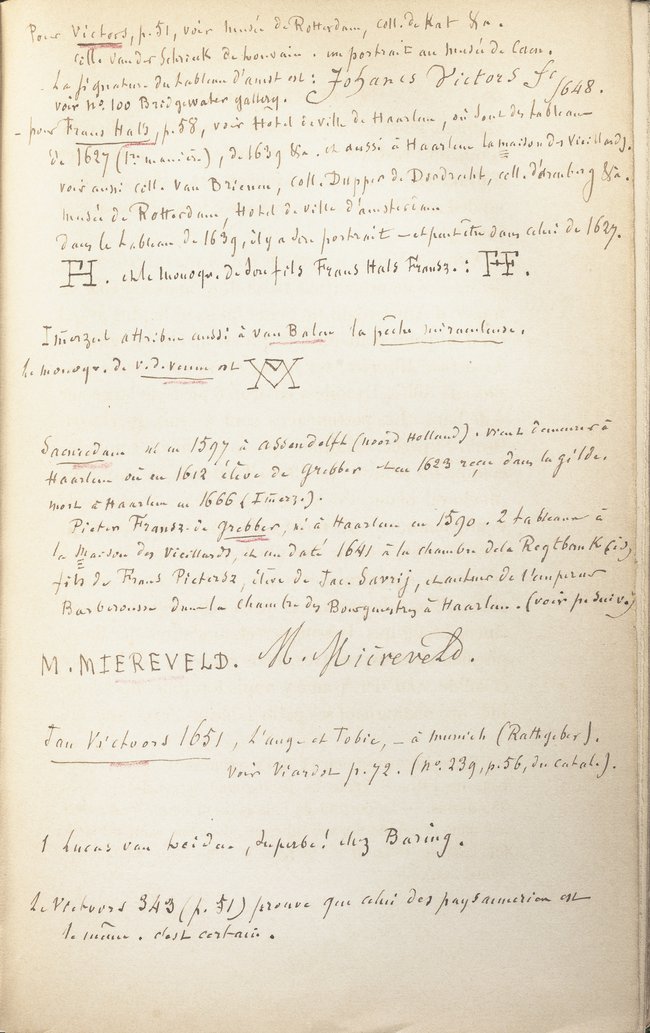 Pour Victors, p. 51, voir musée de Rotterdam, coll. de Kat &a.
celle vander Schrieck de Louvain. un portrait au musée de Caen.
- La signature du tableau d'amst est : Johanes Victors fc 1648.
voir no. 100 Bridgewater gallery.
- pour Frans Hals, p. 58, voir Hotel de ville de Haarlem, où sont des tableaux
de 1627 (1re manière), de 1639 &a. et aussi à Haarlem la maison des Vieillards.
voir aussi coll. van Brienen, coll. Dupper de Dordrecht, coll. d'arenberg &a.
musée de Rotterdam, Hotel de ville d'amsterdam
dans le tableau de 1639, il y a son portrait — et peut être dans celui de 1627.
FH. et le monogr. de son fils Frans Hals Fransz. : FHF.
Imerzeel attribue aussi à van Balen la pêche miraculeuse.
le monogr. de v. de venne est
Saenredam né en 1597 à assendelft (noord Holland). vient demeurer à
Haarlem où en 1612 élève de Grebber et en 1623 reçu dans la gilde.
mort à Haarlem en 1666 (Imerz.).
Pieter Fransz de Grebber, né à Haarlem en 1590. 2 tableaux à
la Maison des Vieillards, et un daté 1641 à la chambre de la Regtbank (id)
fils de Frans Pietersz, élève de Jac. Savrij, et auteur de l'empereur
Barberousse dans la chambre des Bourgmestres à Haarlem. (voir p. suiv.)
M. MIEREVELD. M. Miereveld.
Jan Victoors 1651, L'ange et Tobie, — à Munich (Rathgeber).
voir Viardot p. 72. (no. 239, p. 56, du catal.).
1 Lucas van Leiden, superbe! chez Baring.
le Victoors 343 (p. 51) prouve que celui des paysanneries est
le même. c'est certain.